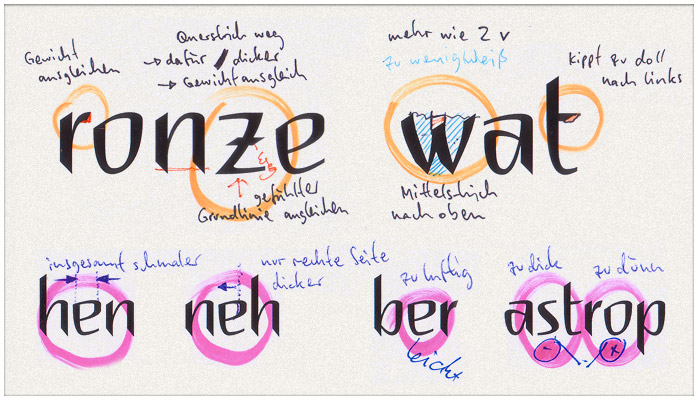 Gewicht
ausgleichen
Querstrich weg
→ dafür / dicker
→ Gewichtausgleich
mehr wie 2 v
zu wenig weiß
kippt zu doll
nach links
ronze
wat
gefühlter
Grundlinie angleichen
Mittelstrich
nach oben
insgesamt schmaler
nur rechte Seite
dicker
zu luftig
zu dick
zu dünn
hen
neh
ber
astrop
leicht
- +